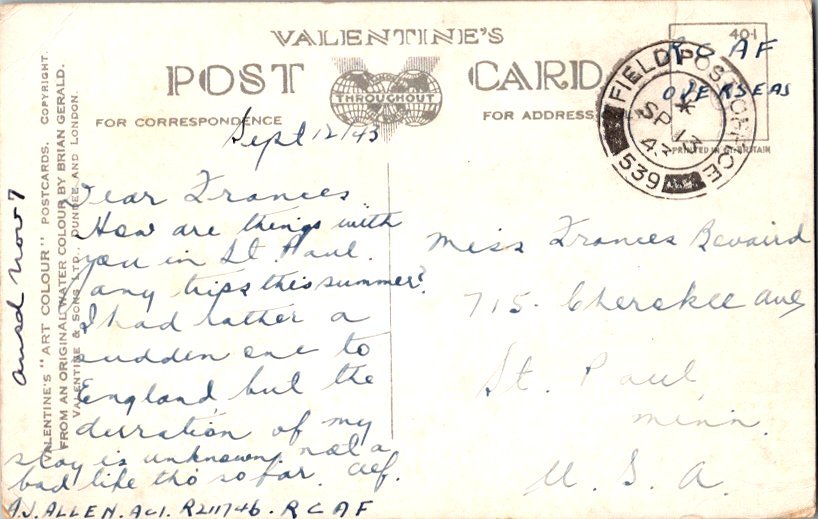 VALENTINE'S
POST CARD
THROUGHOUT
FOR CORRESPONDENCE
FOR ADDRESS
401
R C A F
OVERSEAS
FIELD POST OFFICE
SP 13
43
539
PRINTED IN GT. BRITAIN
VALENTINE'S "ART COLOUR" POSTCARDS. COPYRIGHT.
FROM AN ORIGINAL WATER COLOUR BY BRIAN GERALD.
VALENTINE & SONS LTD. DUNDEE AND LONDON.
ansd Nov 7
Sept 12/43
Dear Frances
How are things with
you in St. Paul.
any trips this summer?
I had rather a
sudden one to
England, but the
durration of my
stay is unknown. not a
bad life tho so far.
A.J. ALLEN. AC1. R211746. RCAF
Miss Frances Bevaird
715. Cherokee ave
St. Paul
Minn.
U. S. A.